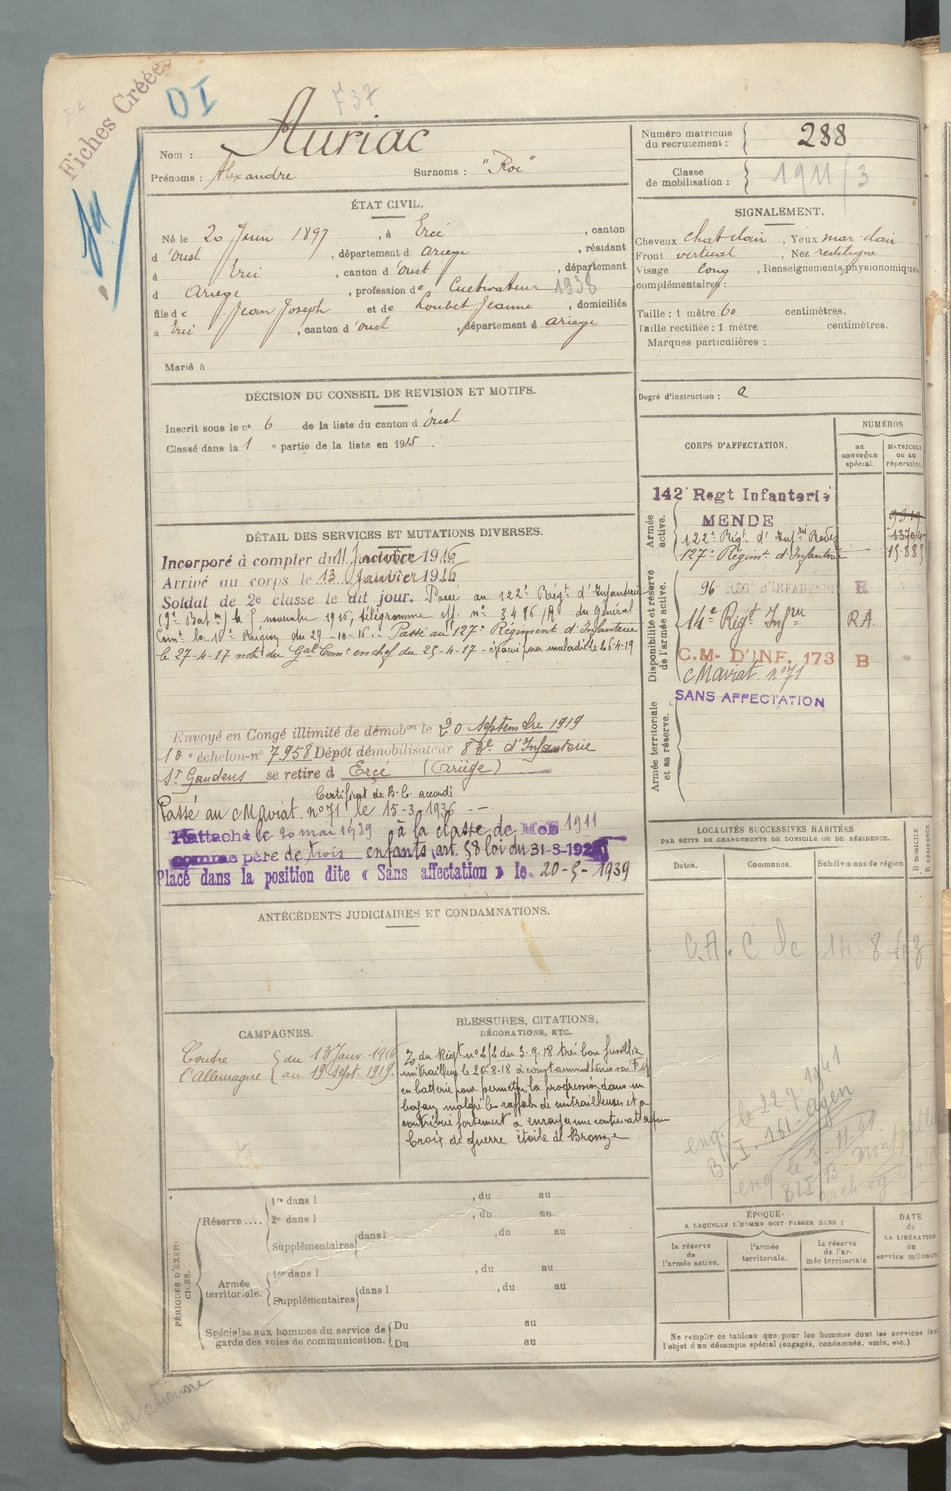 Fiches Créées
DI
F37
Nom : Auriac
Prénoms : Alexandre Surnoms : "Roi"
Numéro matricule du recrutement : 288
Classe de mobilisation : 1911/3
ÉTAT CIVIL.
Né le 20 Juin 1897, à Ercé, canton
d'Oust, département d Ariège, résidant
à Ercé, canton d'Oust, département
d Ariège, profession de Cultivateur 1938
fils de Jean Joseph et de Loubet Jeanne, domiciliés
à Ercé, canton d'Oust, département d Ariège
Marié à
SIGNALEMENT.
Cheveux chat clair, Yeux mar clair
Front vertical, Nez rectiligne
Visage long, Renseignements physionomiques
complémentaires :
Taille : 1 mètre 60 centimètres.
Taille rectifiée : 1 mètre centimètres.
Marques particulières :
Degré d'instruction : 2
DÉCISION DU CONSEIL DE REVISION ET MOTIFS.
Inscrit sous le nº 6 de la liste du canton d'Oust
Classé dans la 1 e partie de la liste en 1915.
DÉTAIL DES SERVICES ET MUTATIONS DIVERSES.
Incorporé à compter du 11 Janvier 1916
Arrivé au corps le 13 Janvier 1916
Soldat de 2e classe le dit jour. Passé au 122e Régt d'Infanterie
(9e Batn) le 5 novembre 1916, télégramme off. nº 3486/A du Général
Comt la 16e Région du 29-10-16. Passé au 127e Régiment d'Infanterie
le 27-4-17 note du Gal Comt en chef du 25-4-17 - évacué pour maladie le 26-4-19
Envoyé en Congé illimité de démobon le 20 Septembre 1919
10 e échelon nº 7958 Dépôt démobilisateur 83e d'Infanterie
St Gaudens se retire à Ercé (Ariège)
Certificat de B.C. accordé
Passé au C Mariat. nº 71 le 15-3-1936
Rattaché le 20 mai 1939 à la classe de Mob 1911
comme père de trois enfants art. 58 loi du 31-3-1928
Placé dans la position dite « Sans affectation » le 20-5-1939
CORPS D'AFFECTATION.
NUMÉROS
AU CONTRÔLE spécial.
MATRICULE OU AU répertoire.
Armée active.
142e Regt Infanterie
MENDE
122e Régt d'Infrie Rodez 13704
127e Régimt d'Infanterie 15885
Disponibilité et réserve de l'armée active.
96 REGT D'INFANTERIE R
14e Régt Infrie RA.
C.M. D'INF. 173 B
C Mariat. nº 71
SANS AFFECTATION
Armée territoriale et sa réserve.
LOCALITÉS SUCCESSIVES HABITÉES
PAR SUITE DE CHANGEMENTS DE DOMICILE OU DE RÉSIDENCE.
Dates. Communes. Subdivisions de région
D DOMICILE R RÉSIDENCE
C.A. C de 14-8-43
eng. le 22-7-1941
BLI. 161. Agen
ANTÉCÉDENTS JUDICIAIRES ET CONDAMNATIONS.
CAMPAGNES.
Contre du 13 Janv. 1916
l'Allemagne au 19 Sept. 1919.
BLESSURES, CITATIONS,
DÉCORATIONS, ETC.
mitrailleur le 29-8-18
en batterie pour permettre la progression dans un
boyau malgré les rafales de mitrailleuses et a
contribué fortement à enrayer une contre-attaque
Croix de guerre étoile de Bronze
PÉRIODES D'EXERCICES.
Réserve....
1re dans l , du au
2e dans l , du au
Supplémentaires dans l , du au
Armée territoriale.
1re dans l , du au
Supplémentaires dans l , du au
Spéciales aux hommes du service de garde des voies de communication.
Du au
Du au
ÉPOQUE
A LAQUELLE L'HOMME DOIT PASSER DANS :
la réserve de l'armée active.
l'armée territoriale.
la réserve de l'armée territoriale
DATE de LA LIBÉRATION du service militaire
Ne remplir ce tableau que pour les hommes dont les services font
l'objet d'un décompte spécial (engagés, condamnés, omis, etc.)